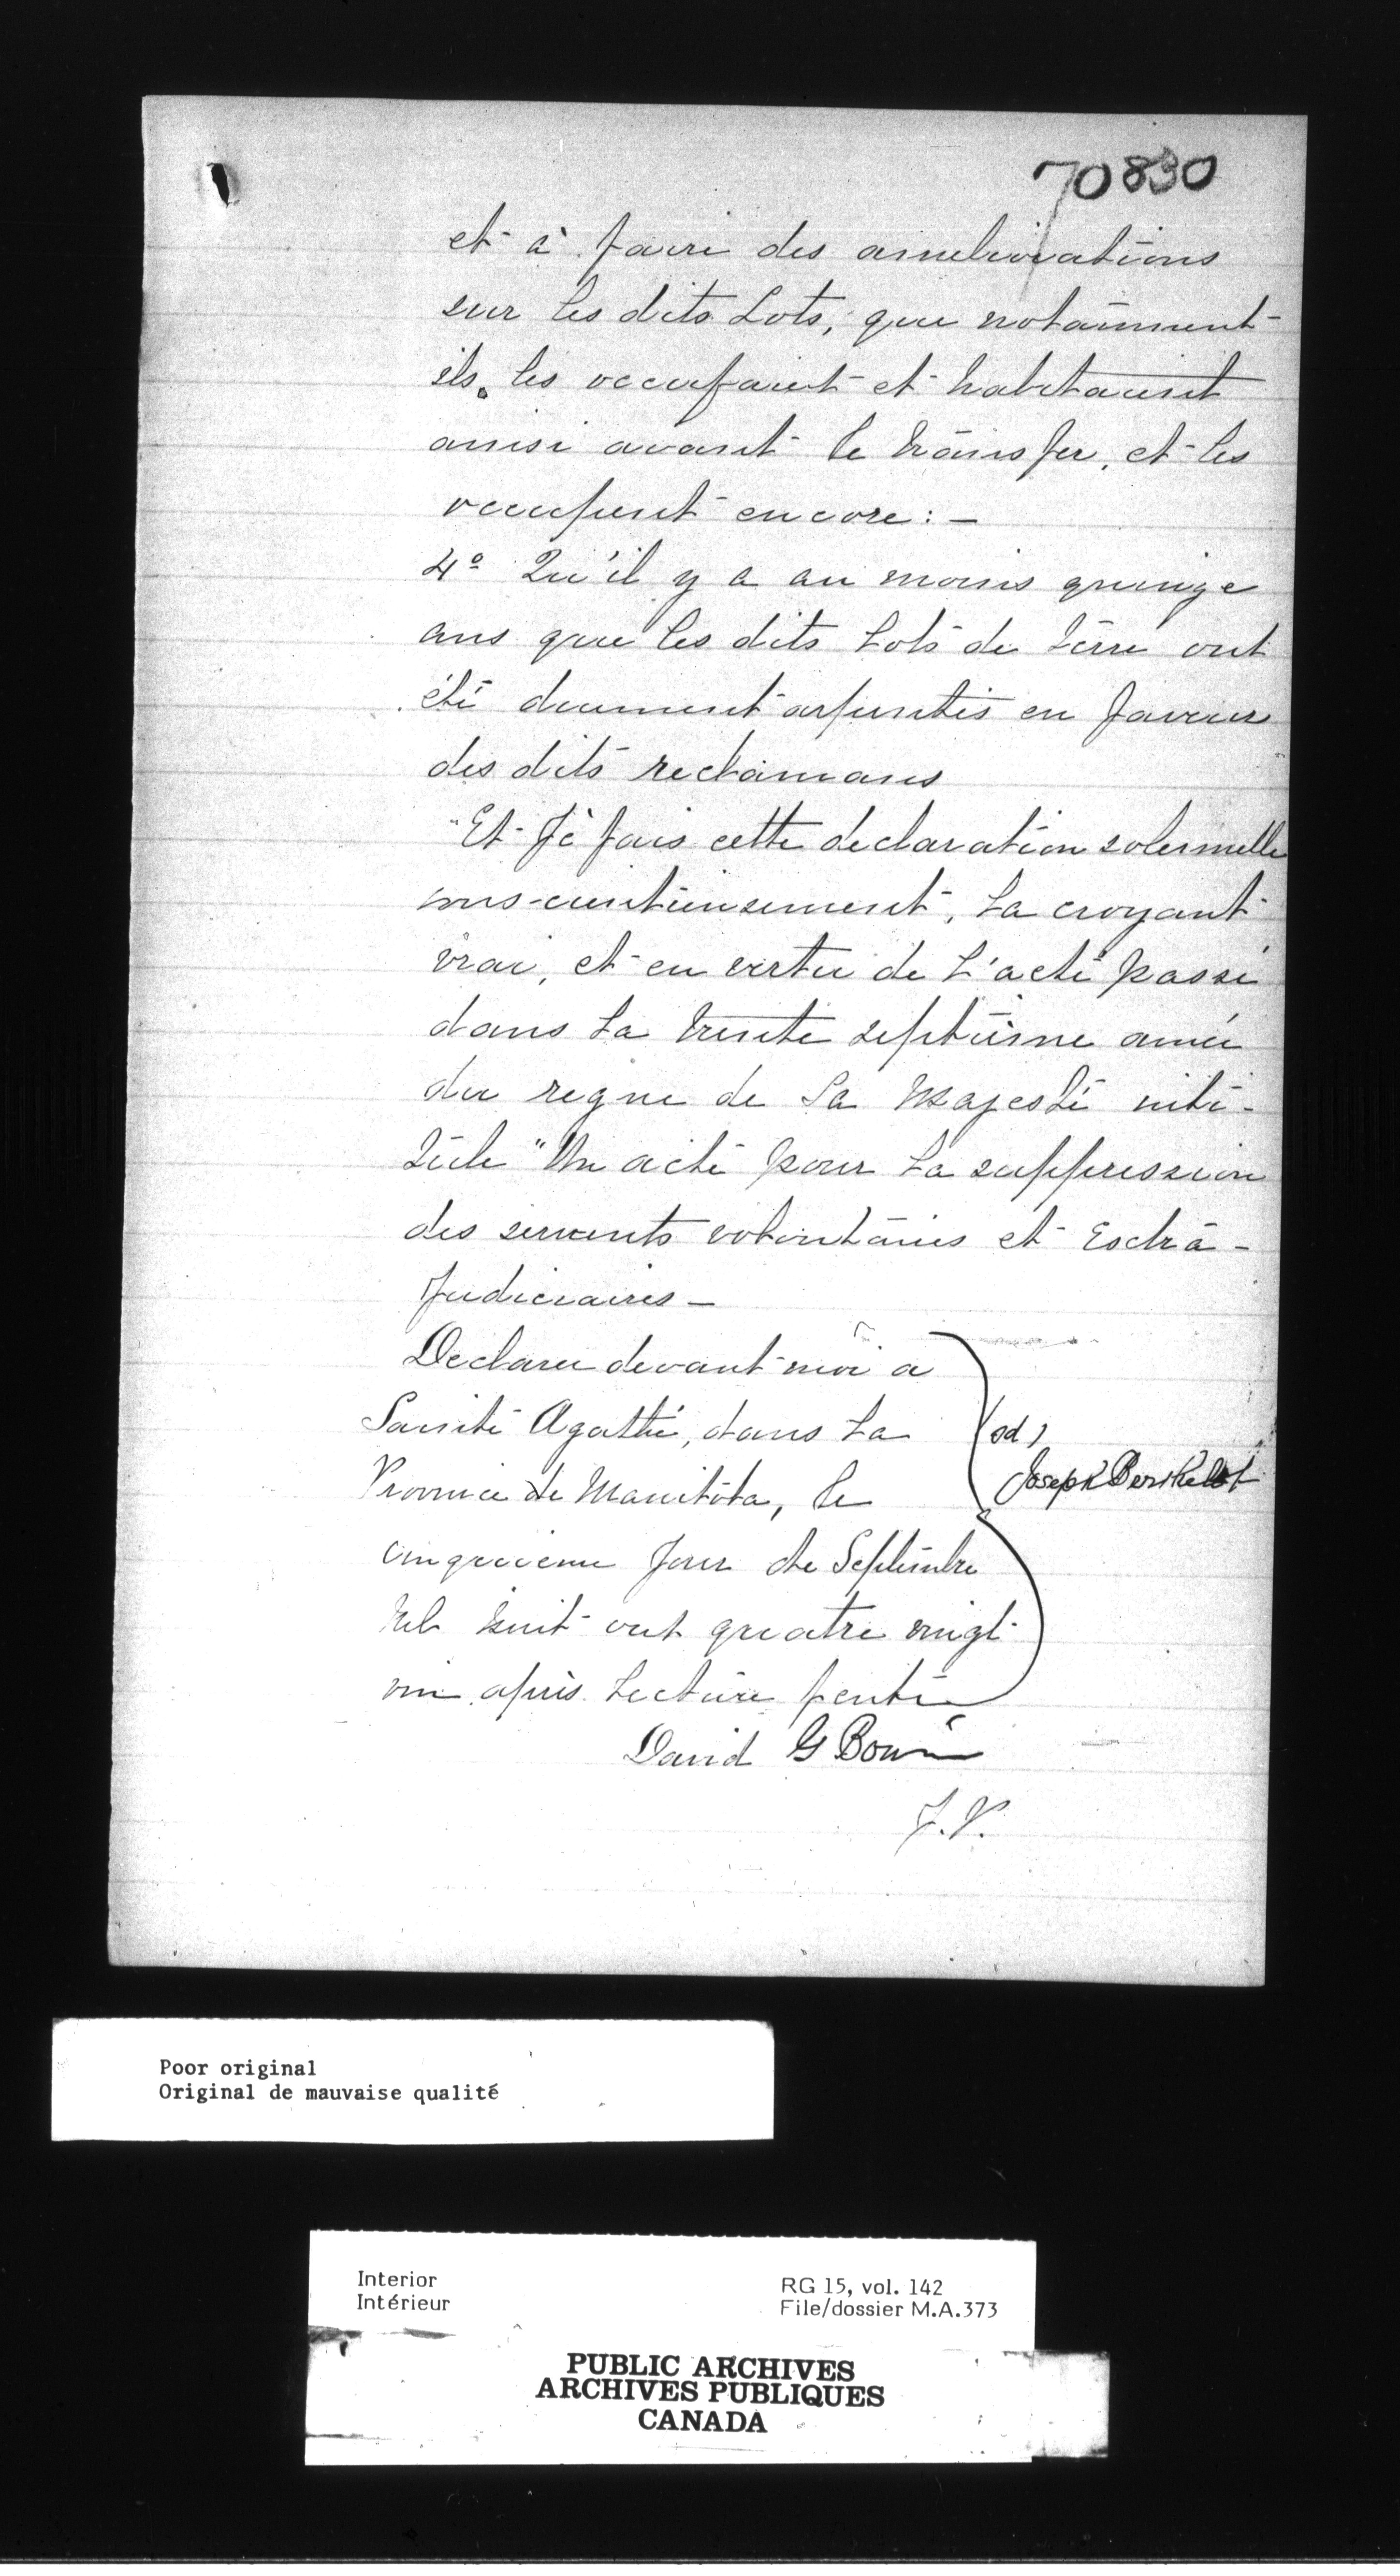 70830
et à faire des ameliorations
sur les dits Lots, que notamment
ils les occupaient et habitaient
ainsi avant le transfer, et les
occupent encore : —
4º Qu'il y a au moins quinze
ans que les dits Lots de terre ont
été duement arpentés en faveur
des dits reclamans
Et Je fais cette declaration solennelle
consciencieusement, la croyant
vrai, et en vertu de l'acte passé
dans la trente septième année
du regne de Sa Majesté inti-
tulé "Un acte pour la suppression
des serments volontaires et Extra-
Judiciaires —
Declaré devant moi a
Sainte Agathe, dans la
Province de Manitoba, le
cinquieme Jour de Septembre
Mil huit cent quatre vingt
un après lecture faite
(sd)
Joseph Berthelot
David G
J.P.
Poor original
Original de mauvaise qualité
Interior
Intérieur
RG 15, vol. 142
File/dossier M.A.373
PUBLIC ARCHIVES
ARCHIVES PUBLIQUES
CANADA